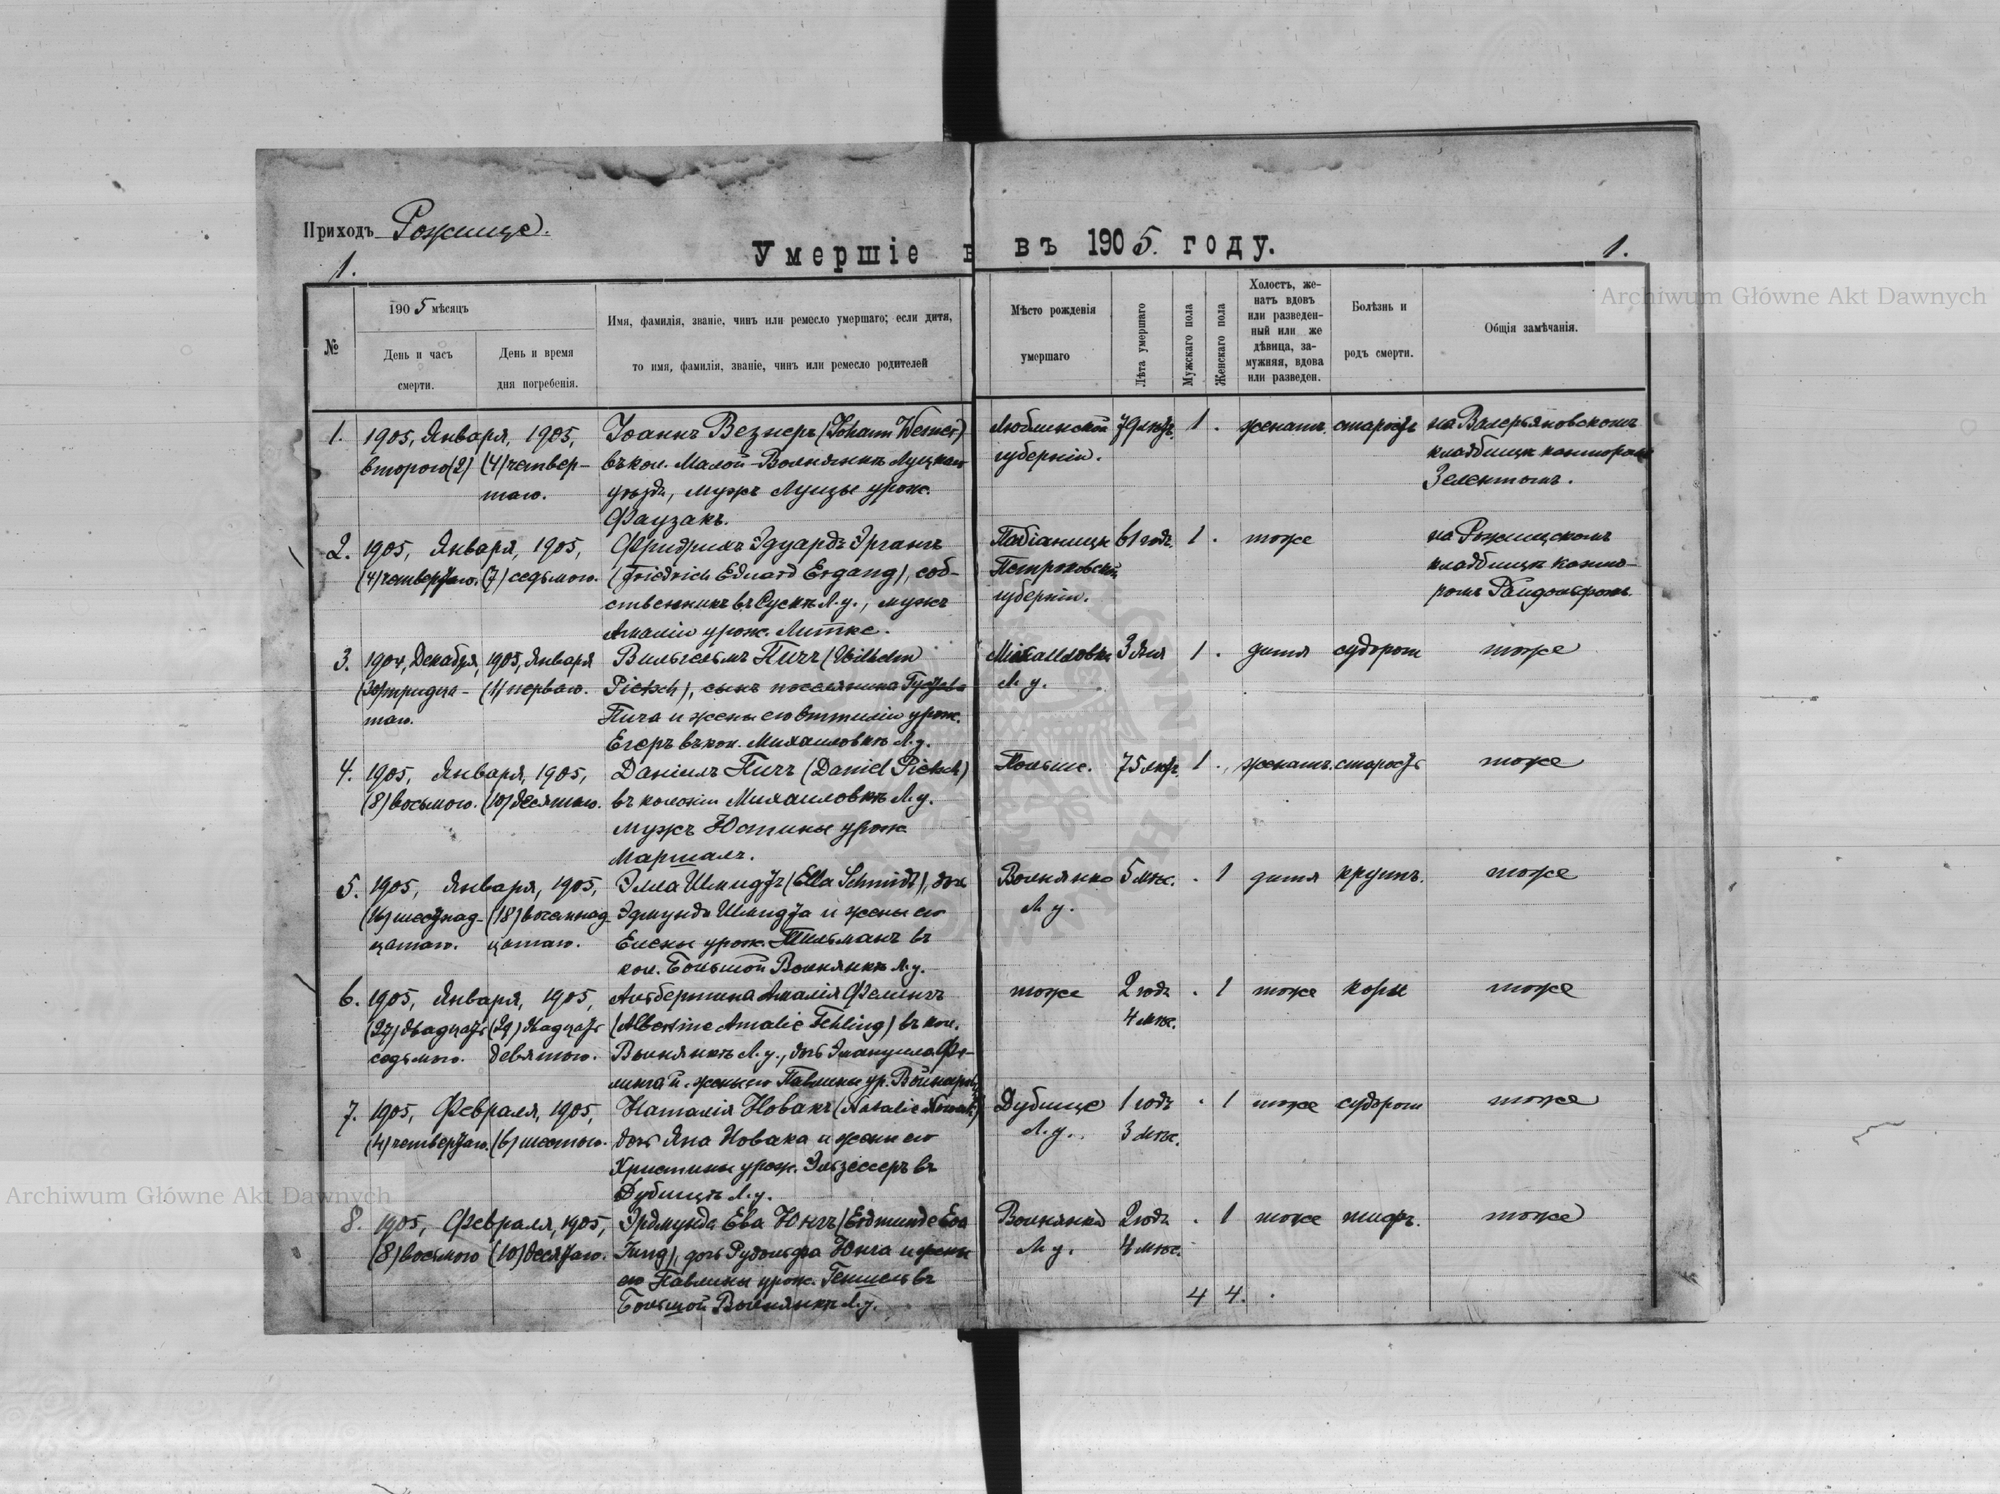 Приходъ Рожище.
Умершіе в въ 1905. году.
1.
1.
№
1905 мѣсяцъ
День и часъ
смерти.
День и время
дня погребенія.
Имя, фамилія, званіе, чинъ или ремесло умершаго; если дитя,
то имя, фамилія, званіе, чинъ или ремесло родителей
Мѣсто рожденія
умершаго
Лѣта умершаго
Мужскаго пола
Женскаго пола
Холостъ, же-
натъ вдовъ
или разведен-
ный или же
дѣвица, за-
мужняя, вдова
или разведен.
Болѣзнь и
родъ смерти.
Общія замѣчанія.
1.
1905, Января,
второго (2)
1905,
(4) четвер-
таго.
Іоаннъ Везнеръ (Johann Wesner)
въ кол. Малой-Волнянкѣ Луцкаго
уѣзда, мужъ Луизы урож.
Фаузакъ.
Люблинской
губерніи.
79 лѣтъ.
1 .
женатъ.
старость
на Валерьяновскомъ
кладбищѣ канторомъ
Зелентомъ.
2.
1905, Января,
(4) четвертаго.
1905,
(7) седьмого.
Фридрихъ Эдуардъ Эргангъ
(Friedrich Eduard Ergang), соб-
ственникъ въ Сускѣ Л. у., мужъ
Амаліи урож. Литке.
Пабіаницы
Петроковской
губерніи.
61 годъ.
1 .
тоже
на Рожищскомъ
кладбищѣ канто-
ромъ
3.
1904, Декабря,
(30) тридца-
таго.
1905, Января
(1) перваго.
Вильгельмъ Пичъ (Wilhelm
Pietsch), сынъ поселянина Густава
Пича и жены его Оттиліи урож.
Егеръ въ кол. Михаиловкѣ Л. у.
Михаиловка
Л. у.
3 дня
1 .
дитя
судороги
тоже
4.
1905, Января,
(8) восьмого.
1905,
(10) десятаго.
Даніилъ Пичъ (Daniel Pietsch)
въ колоніи Михаиловкѣ Л. у.
мужъ Юстины урож.
Маршалъ.
Польше.
75 лѣтъ
1 .
женатъ.
старость
тоже
5.
1905, Января,
(16) шестнад-
цатаго.
1905,
(18) восемнад-
цатаго.
Элла Шмидтъ (Ella Schmidt), дочь
Эдмунда Шмидта и жены его
Елены урож. Тильманъ въ
кол. Большой Волнянкѣ Л. у.
Волнянка
Л. у.
5 мѣс.
. 1
дитя
крупъ.
тоже
6.
1905, Января,
(27) двадцать
седьмого.
1905,
(29) двадцать
девятого.
Альбертина Амалія Фелингъ
(Albertine Amalie Fehling) въ кол.
Волнянкѣ Л. у., дочь Эмануила Фе-
линга и жены его Павлины ур.
тоже
2 года
4 мѣс.
. 1
тоже
корь
тоже
7.
1905, Февраля,
(4) четвертаго.
1905,
(6) шестого.
Наталія Новакъ (Natalie Nowak)
дочь Яна Новака и жены его
Христины урож. Эльзессеръ въ
Дубищѣ Л. у.
Дубище
Л. у.
1 годъ
3 мѣс.
. 1
тоже
судороги
тоже
8.
1905, Февраля,
(8) восьмого
1905,
(10) десятаго.
Эрдмунда Ева Юнгъ (Erdmunde Eva
Jung), дочь Рудольфа Юнга и жены
его Павлины урож. Геншель въ
Большой Волнянкѣ Л. у.
Волнянка
Л. у.
2 года
4 мѣс.
. 1
тоже
тифъ.
тоже
4 4.
Archiwum Główne Akt Dawnych
Archiwum Główne Akt Dawnych